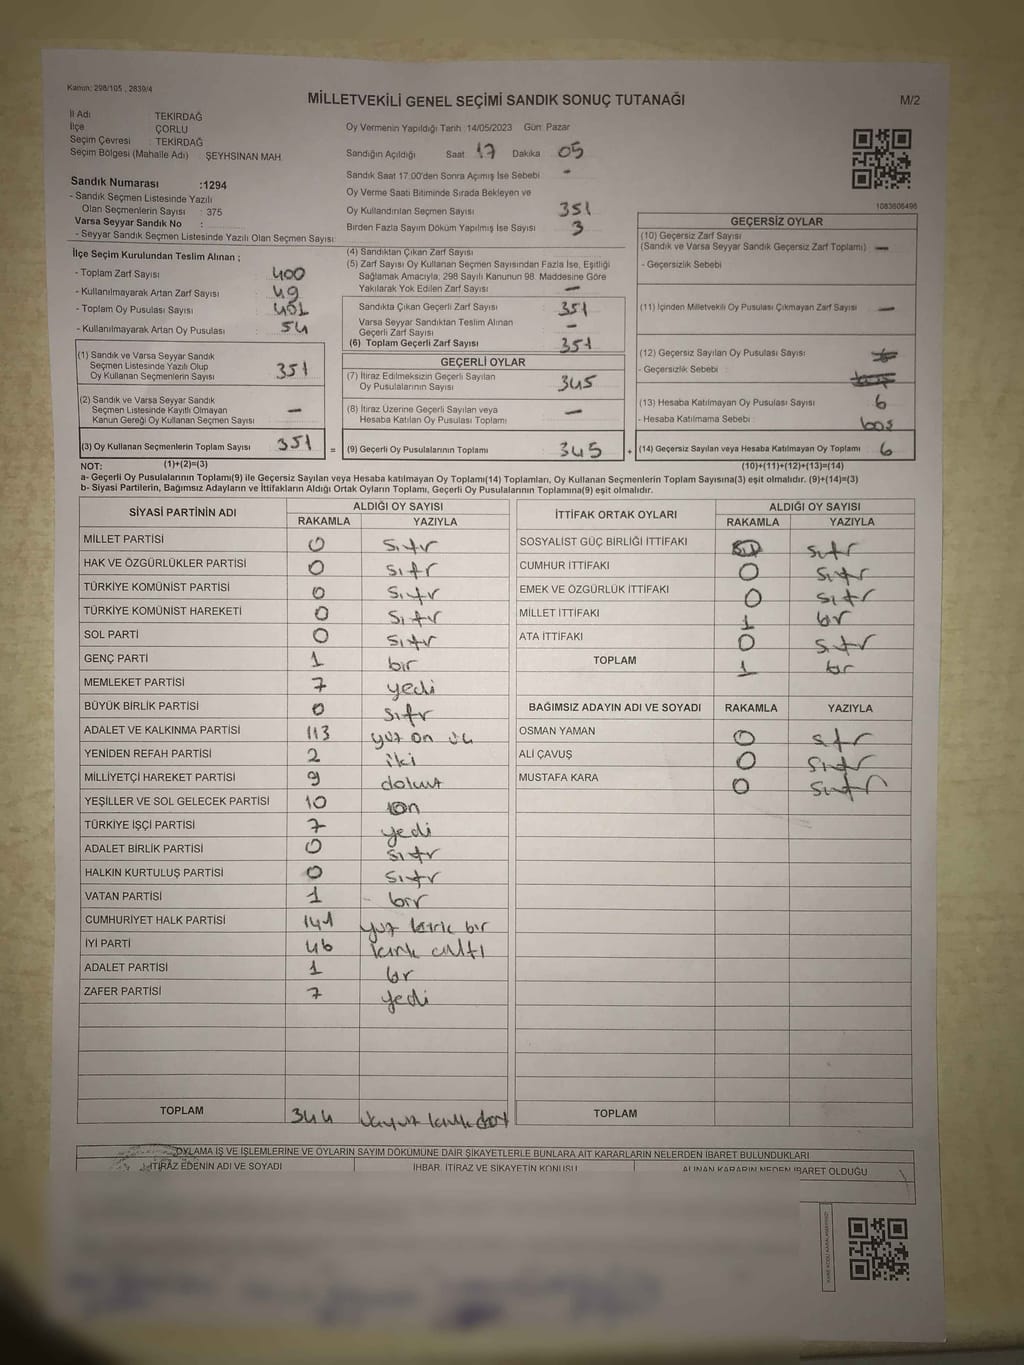 Kanun: 298/105 , 2839/4
MİLLETVEKİLİ GENEL SEÇİMİ SANDIK SONUÇ TUTANAĞI
M/2
İl Adı TEKİRDAĞ
İlçe ÇORLU
Seçim Çevresi : TEKİRDAĞ
Seçim Bölgesi (Mahalle Adı) ŞEYHSİNAN MAH.
Oy Vermenin Yapıldığı Tarih 14/05/2023 Gün: Pazar
Sandığın Açıldığı Saat 17 Dakika 05
Sandık Saat 17.00'den Sonra Açımış İse Sebebi -
Oy Verme Saati Bitiminde Sırada Bekleyen ve
Oy Kullandırılan Seçmen Sayısı 351
Birden Fazla Sayım Döküm Yapılmış İse Sayısı 3
1083606496
Sandık Numarası :1294
- Sandık Seçmen Listesinde Yazılı
Olan Seçmenlerin Sayısı : 375
Varsa Seyyar Sandık No :
- Seyyar Sandık Seçmen Listesinde Yazılı Olan Seçmen Sayısı:
İlçe Seçim Kurulundan Teslim Alınan ;
- Toplam Zarf Sayısı 400
- Kullanılmayarak Artan Zarf Sayısı 49
- Toplam Oy Pusulası Sayısı
- Kullanılmayarak Artan Oy Pusulası 54
(1) Sandık ve Varsa Seyyar Sandık
Seçmen Listesinde Yazılı Olup
Oy Kullanan Seçmenlerin Sayısı 351
(2) Sandık ve Varsa Seyyar Sandık
Seçmen Listesinde Kayıtlı Olmayan
Kanun Gereği Oy Kullanan Seçmen Sayısı -
(3) Oy Kullanan Seçmenlerin Toplam Sayısı 351 =
(4) Sandıktan Çıkan Zarf Sayısı
(5) Zarf Sayısı Oy Kullanan Seçmen Sayısından Fazla İse, Eşitliği
Sağlamak Amacıyla, 298 Sayılı Kanunun 98. Maddesine Göre
Yakılarak Yok Edilen Zarf Sayısı -
Sandıkta Çıkan Geçerli Zarf Sayısı 351
Varsa Seyyar Sandıktan Teslim Alınan
Geçerli Zarf Sayısı -
(6) Toplam Geçerli Zarf Sayısı 351
GEÇERLİ OYLAR
(7) İtiraz Edilmeksizin Geçerli Sayılan
Oy Pusulalarının Sayısı 345
(8) İtiraz Üzerine Geçerli Sayılan veya
Hesaba Katılan Oy Pusulaları Toplamı -
(9) Geçerli Oy Pusulalarının Toplamı 345 +
GEÇERSİZ OYLAR
(10) Geçersiz Zarf Sayısı
(Sandık ve Varsa Seyyar Sandık Geçersiz Zarf Toplamı) -
- Geçersizlik Sebebi
(11) İçinden Milletvekili Oy Pusulası Çıkmayan Zarf Sayısı -
(12) Geçersiz Sayılan Oy Pusulası Sayısı
- Geçersizlik Sebebi
(13) Hesaba Katılmayan Oy Pusulası Sayısı 6
- Hesaba Katılmama Sebebi boş
(14) Geçersiz Sayılan veya Hesaba Katılmayan Oy Toplamı 6
NOT: (1)+(2)=(3)
(10)+(11)+(12)+(13)=(14)
a- Geçerli Oy Pusulalarının Toplamı(9) ile Geçersiz Sayılan veya Hesaba katılmayan Oy Toplamı(14) Toplamları, Oy Kullanan Seçmenlerin Toplam Sayısına(3) eşit olmalıdır. (9)+(14)=(3)
b- Siyasi Partilerin, Bağımsız Adayların ve İttifakların Aldığı Ortak Oyların Toplamı, Geçerli Oy Pusulalarının Toplamına(9) eşit olmalıdır.
SİYASİ PARTİNİN ADI ALDIĞI OY SAYISI
RAKAMLA YAZIYLA
MİLLET PARTİSİ 0 sıfır
HAK VE ÖZGÜRLÜKLER PARTİSİ 0 sıfır
TÜRKİYE KOMÜNİST PARTİSİ 0 sıfır
TÜRKİYE KOMÜNİST HAREKETİ 0 sıfır
SOL PARTİ 0 sıfır
GENÇ PARTİ 1 bir
MEMLEKET PARTİSİ 7 yedi
BÜYÜK BİRLİK PARTİSİ 0 sıfır
ADALET VE KALKINMA PARTİSİ 113 yüz on üç
YENİDEN REFAH PARTİSİ 2 iki
MİLLİYETÇİ HAREKET PARTİSİ 9 dokuz
YEŞİLLER VE SOL GELECEK PARTİSİ 10 on
TÜRKİYE İŞÇİ PARTİSİ 7 yedi
ADALET BİRLİK PARTİSİ 0 sıfır
HALKIN KURTULUŞ PARTİSİ 0 sıfır
VATAN PARTİSİ 1 bir
CUMHURİYET HALK PARTİSİ 141 yüz kırk bir
İYİ PARTİ 46 kırk altı
ADALET PARTİSİ 1 bir
ZAFER PARTİSİ 7 yedi
TOPLAM 344 üçyüz kırk dört
İTTİFAK ORTAK OYLARI ALDIĞI OY SAYISI
RAKAMLA YAZIYLA
SOSYALİST GÜÇ BİRLİĞİ İTTİFAKI sıfır
CUMHUR İTTİFAKI 0 sıfır
EMEK VE ÖZGÜRLÜK İTTİFAKI 0 sıfır
MİLLET İTTİFAKI 1 bir
ATA İTTİFAKI 0 sıfır
TOPLAM 1 bir
BAĞIMSIZ ADAYIN ADI VE SOYADI RAKAMLA YAZIYLA
OSMAN YAMAN 0 sıfır
ALİ ÇAVUŞ 0 sıfır
MUSTAFA KARA 0 sıfır
TOPLAM
OYLAMA İŞ VE İŞLEMLERİNE VE OYLARIN SAYIM DÖKÜMÜNE DAİR ŞİKAYETLERLE BUNLARA AİT KARARLARIN NELERDEN İBARET BULUNDUKLARI
İTİRAZ EDENİN ADI VE SOYADI İHBAR, İTİRAZ VE ŞİKAYETİN KONUSU ALINAN KARARIN NEDEN İBARET OLDUĞU